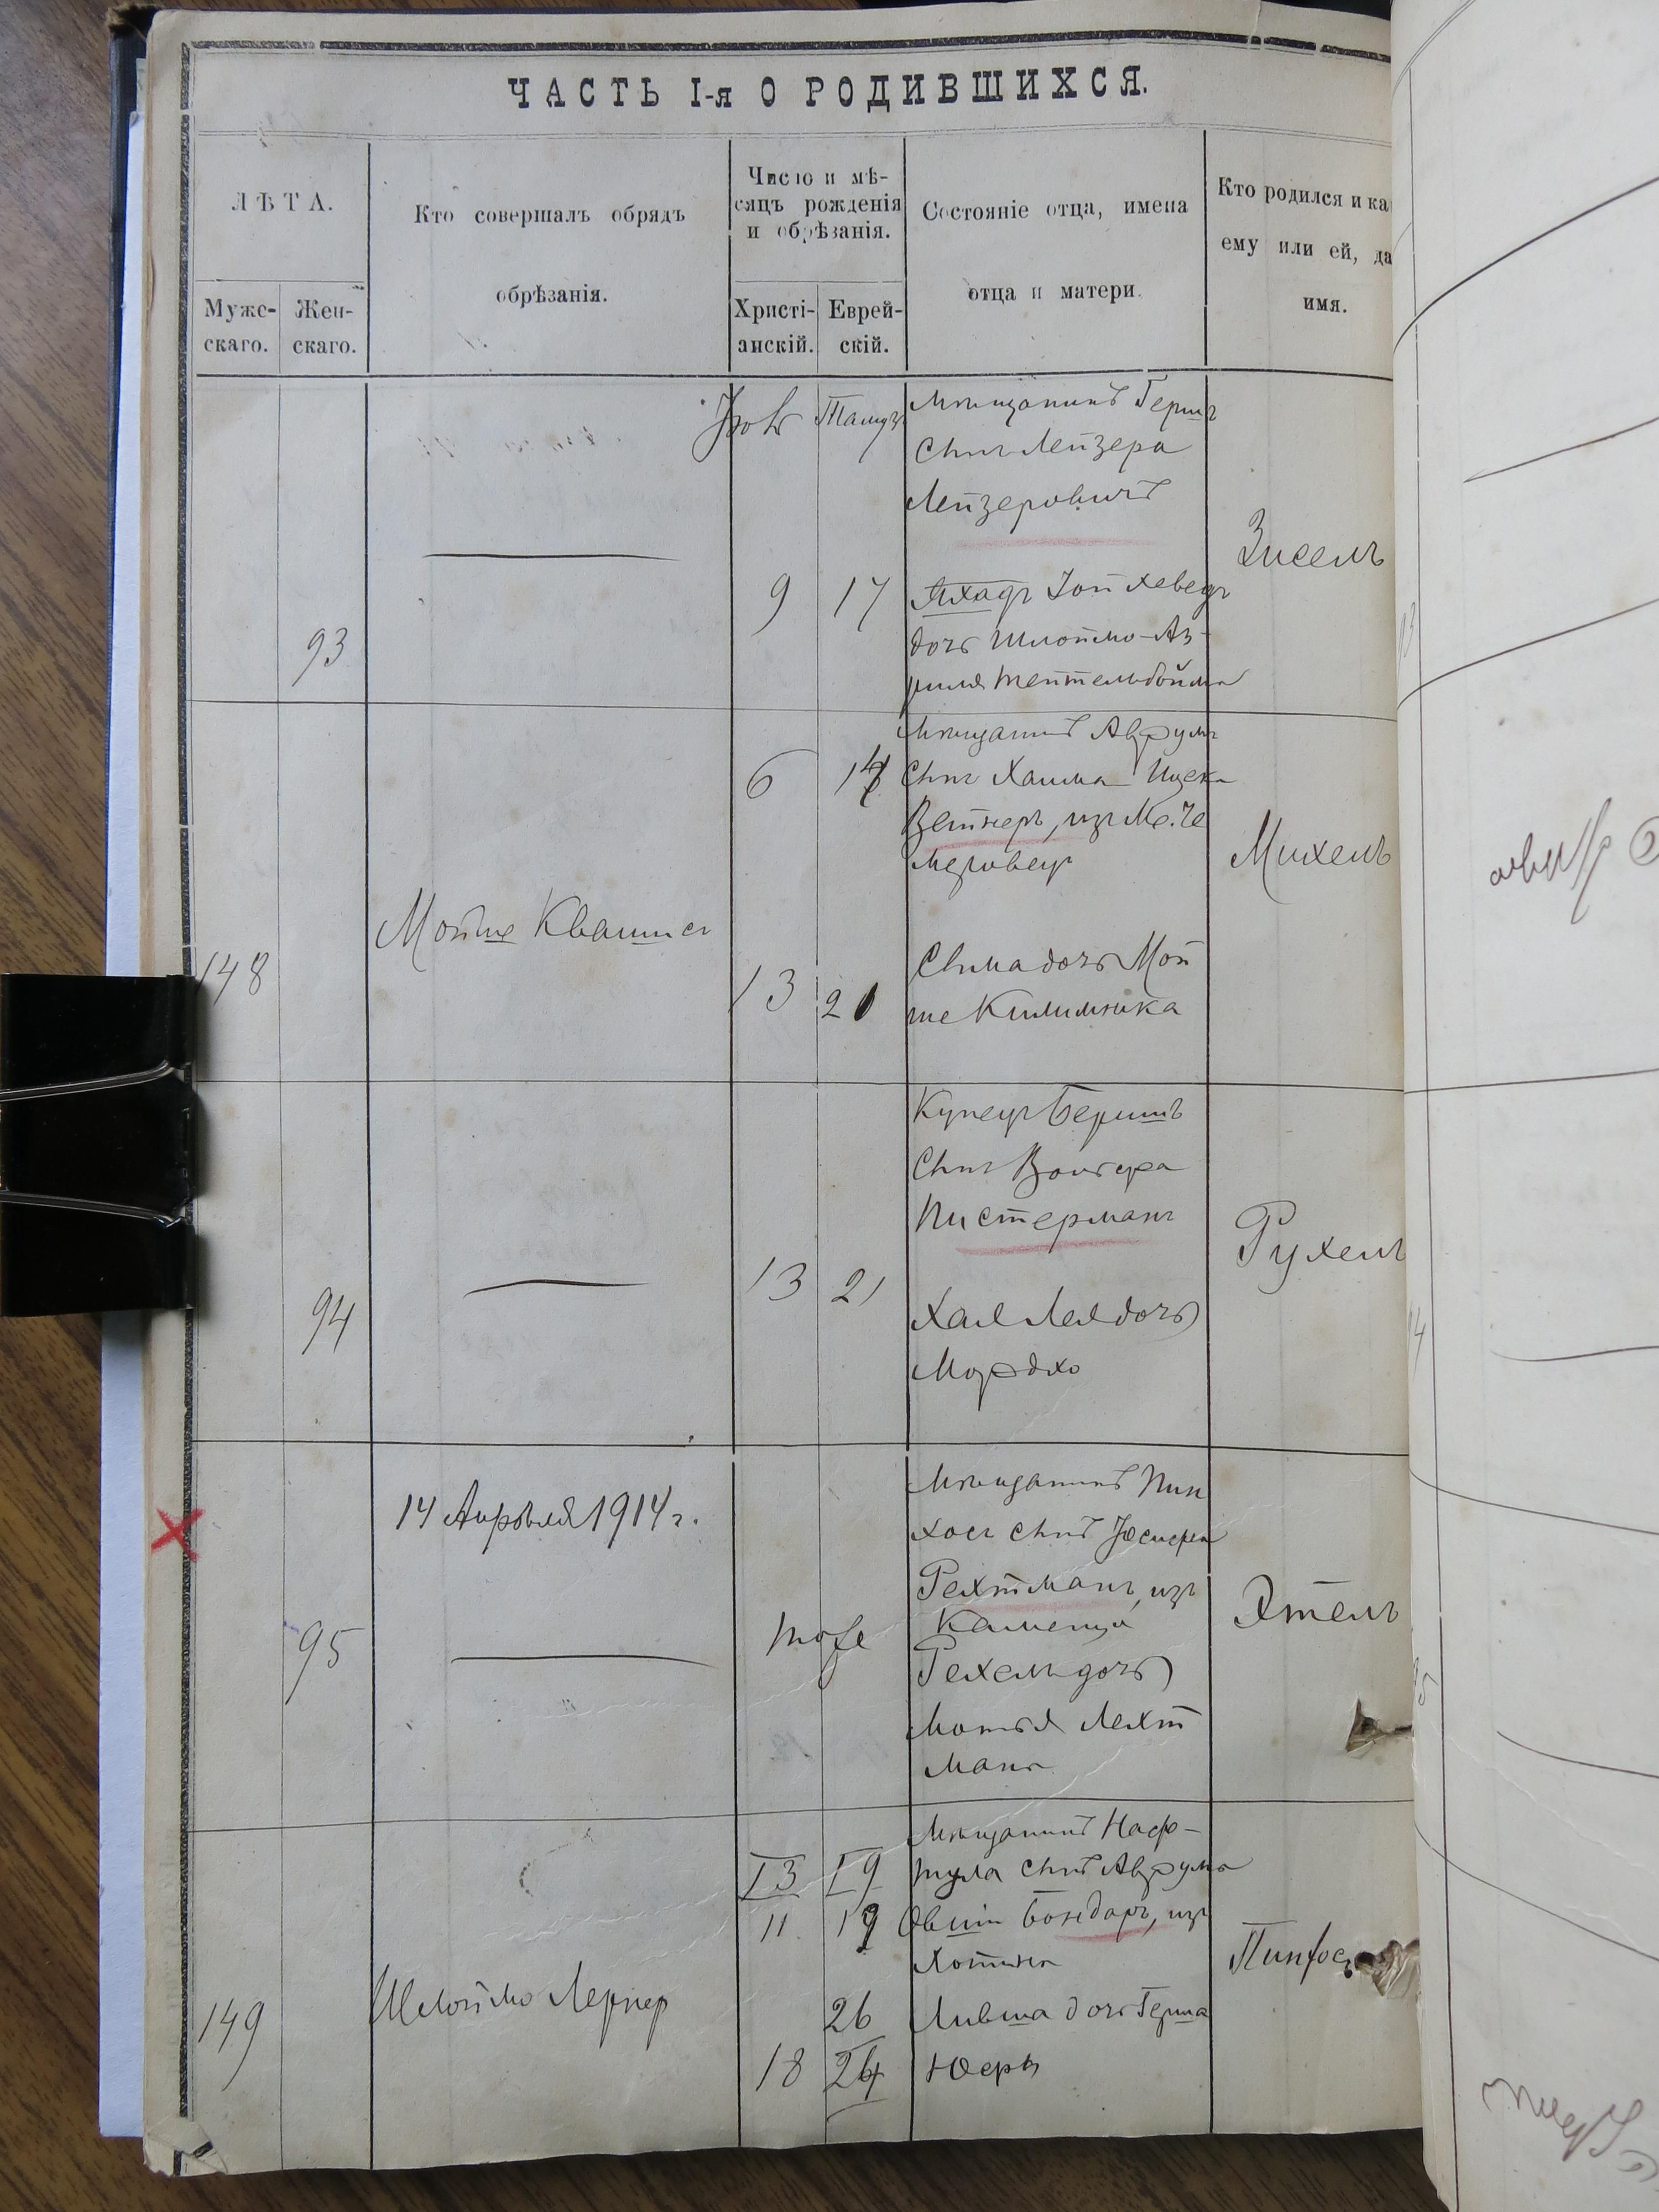 ЧАСТЬ I-я О РОДИВШИХСЯ.
ЛѢТА.
Мужс-
скаго.
Жен-
скаго.
Кто совершалъ обрядъ
обрѣзанія.
Число и мѣ-
сяцъ рожденія
и обрѣзанія.
Христі-
анскій.
Еврей-
скій.
Состояніе отца, имена
отца и матери.
Кто родился и ка
ему или ей, да
имя.
93
9 17
Мѣщанинъ Герш
сынъ Лейзера
Лейзеровичъ
дочь Шлоймо-Аз-
риля Тейтельбойма
Зисель
148
Мойше
6
13
Мѣщанинъ Аврумъ
сынъ Хаима Ицека
Ветнеръ, изъ
Сима дочь Мой
ше Килимника
Михель
94
13 21
Купецъ Беришъ
сынъ
Пистерманъ
Хая Лея дочь
Мордхо
Рухель
14 Апрѣля 1914 г.
95
тоже
Мѣщанинъ Пин
хос сынъ Юсифа
Рехтманъ, изъ
Каменца
Рехель дочь
Мотья Лехт
мана
Этель
149
Шлоймо Лернер
13 19
11 19
26
18 24
Мѣщанинъ Наф-
тула сынъ Аврума
Овшія Бондаръ, изъ
Хотина
Ливша дочь Герша
Юсера
Пинхос